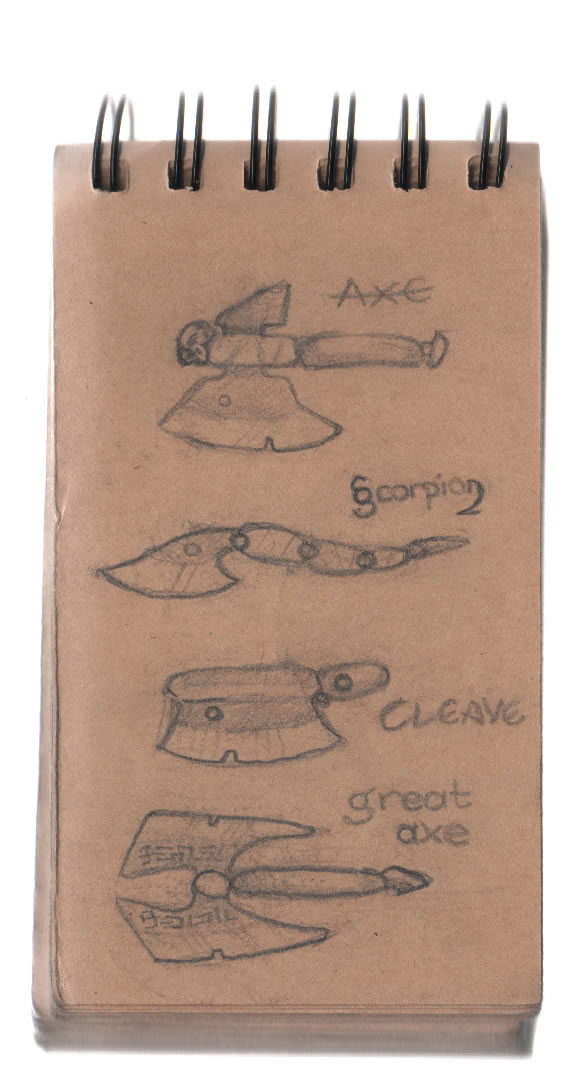 AXE
Scorpion
CLEAVE
great
axe